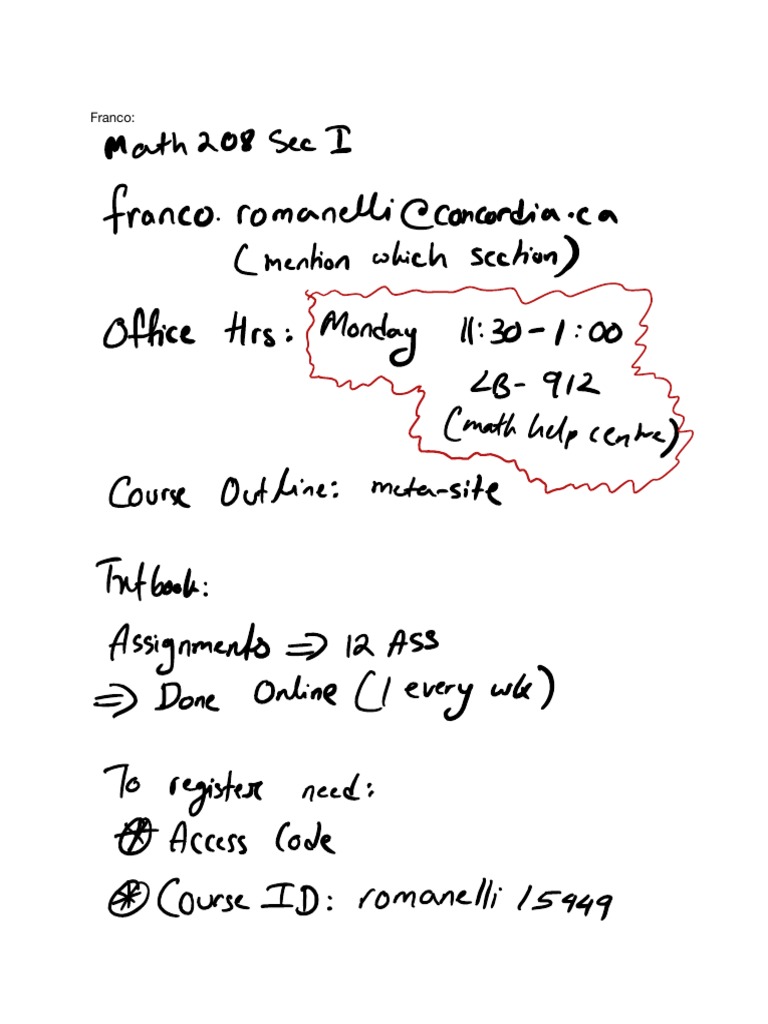 Franco:
Math 208 Sec I
franco.romanelli@concordia.ca
(mention which section)
Office Hrs: Monday 11:30-1:00
LB-912
(math help centre)
Course Outline: meta-site
Textbook:
Assignments ⇒ 12 ASS
⇒ Done Online (1 every wk)
To register need:
⊛ Access Code
⊛ Course ID: romanelli 15949